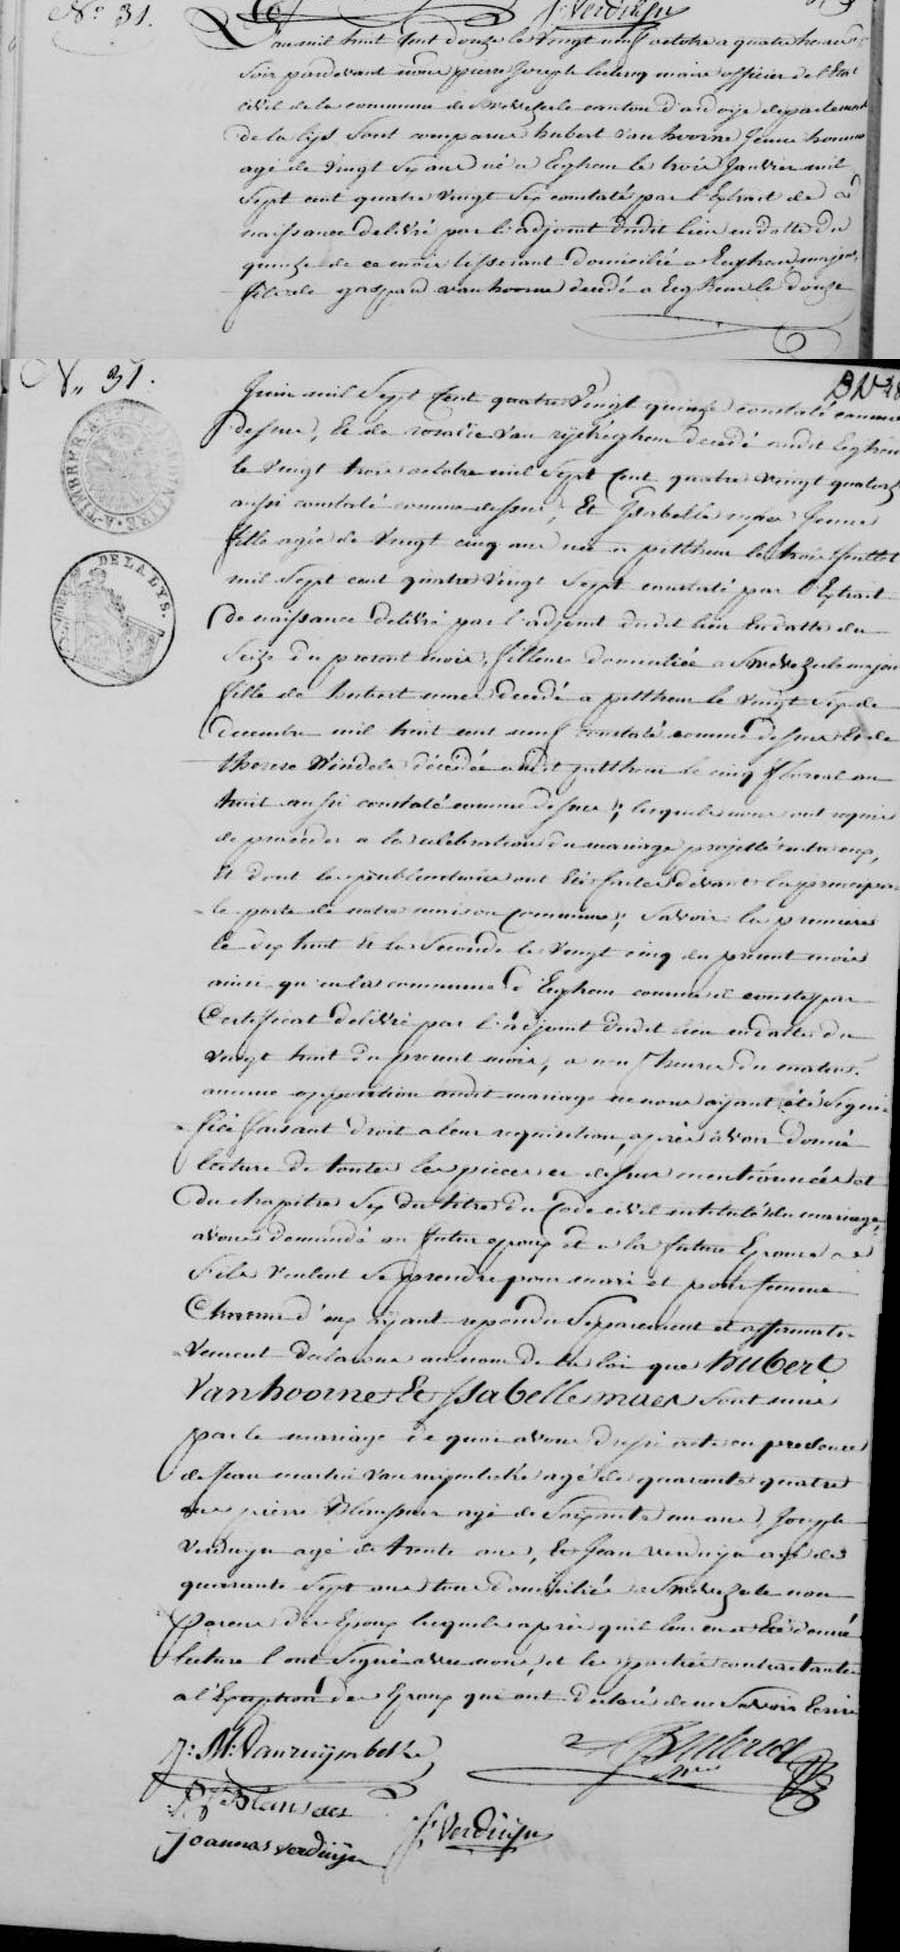 N.º 31.
J. Verduijn
L'an mil huit cent douze le vingt neuf octobre a quatre heures du
soir pardevant nous pierre Joseph leclercq maire officier de l'Etat
civil de la commune de Swevezeele canton d'ardoije departement
de la lijs sont comparus hubert Van hoorne Jeune homme
agé de vingt six ans né a Eeghem le trois Janvier mil
sept cent quatre vingt six constaté par l'Extrait de
naissance delivré par l'adjoint dudit lieu en datte du
quinze de ce mois tisserant domicilié a Eeghem, majeur,
fils de gaspard van hoorne decedé a Eeghem le douze
N.º 31.
Juin mil sept Cent quatre vingt quinze constaté comme
dessus, Et de rosalie Van rijckeghem decedé audit Eeghem
le vingt trois octobre mil sept Cent quatre vingt quatorze
aussi constaté comme dessus, Et Isabelle maes Jeune
fille agée de vingt cinq ans née a pitthem le trois Juillet
mil sept cent quatre vingt sept constaté par l'Extrait
de naissance delivré par l'adjoint dudit lieu en datte du
seize du present mois, fileuse domiciliée a Swevezeele majeure
fille de hubert maes decedé a pitthem le vingt six de
decembre mil huit cent neuf constaté comme dessus et de
therese Windels décédée audit pitthem le cinq floreal an
huit aussi constaté comme dessus; lesquels nous ont requis
de proceder a la celebration du mariage projetté entre eux,
Et dont les publications ont été faites devant la principa-
le porte de notre maison Commune; savoir la premiere
le dix huit Et la Seconde le vingt cinq du present mois
ainsi qu'en la commune d'Eeghem comme il conste par
Certificat delivré par l'adjoint dudit lieu en datte du
vingt huit du present mois, a neuf heures du matin.
aucune opposition audit mariage ne nous aijant été signi-
fiée faisant droit a leur requisition, après avoir donné
lecture de toutes les pieces ci dessus mentionnées et
du chapitre six du titre du Code civil intitulé du mariage,
avons demandé au futur epoux et a la future Epouse
s'ils veulent se prendre pour mari et pour femme
Chacun d'eux aijant repondu separement et affirmati-
vement declarons au nom de la loi que hubert
Vanhoorne Et Isabelle maes sont unis
par le mariage de quoi avons dressé acte en presence
de Jean martin Van ruijmbeke agé de quarante quatre
ans pierre Blansaer agé de soixante un ans, Joseph
Verduijn agé de trente ans, Et Jean verduijn agé de
quarante sept ans tous domiciliés a Swevezeele non
parens des Epoux lesquels après qu'il leur en a Eté donné
lecture l'ont signé avec nous, et les parties contractantes
a l'Exception des Epoux qui ont declaré de ne savoir Ecrire
J: M: Vanruijmbeke
DE LA LYS.
Joannes verduijn
J. Verduijn